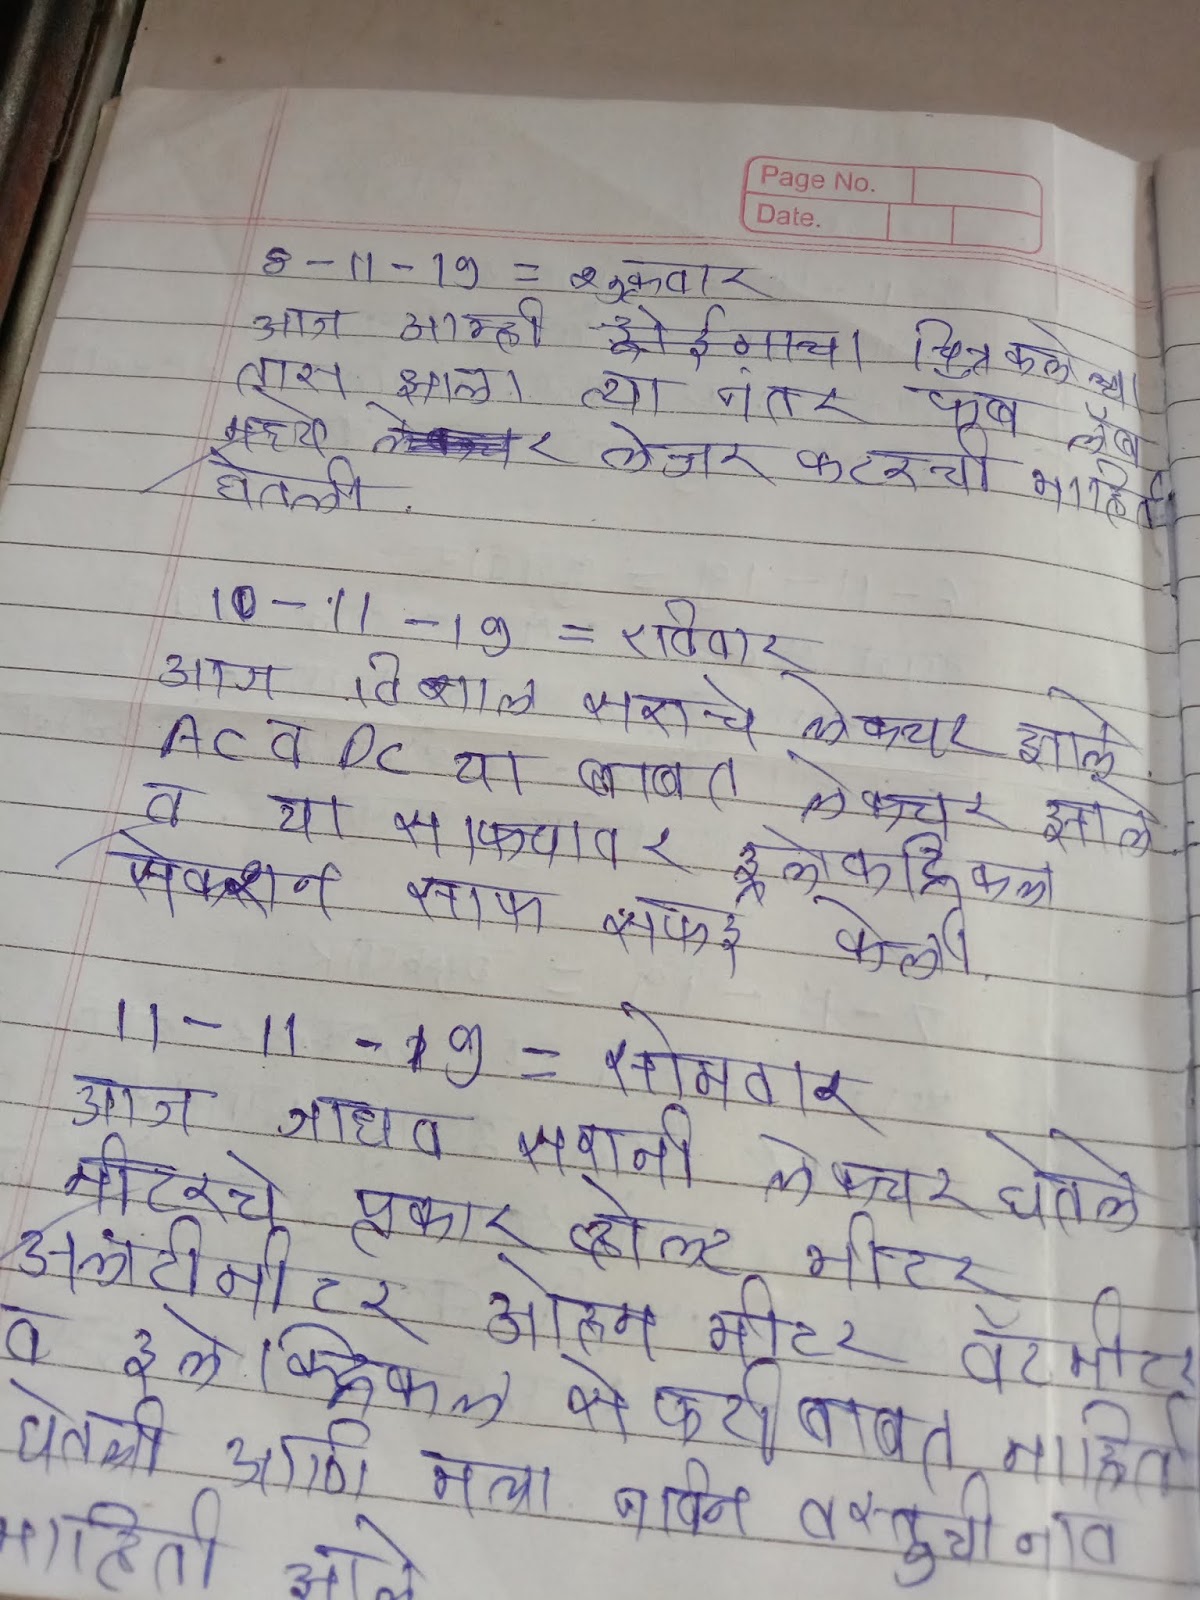 Page No.
Date.
8-11-19 = शुक्रवार
आज आम्ही चित्रकलेच्या
तास झाला त्या नंतर फॅब लॅब
मध्ये लेजर कटरची माहिती
घेतली.
10-11-19 = रविवार
आज विशाल सराचे लेक्चर झाले.
AC व DC या बाबत लेक्चर झाले.
व या साफयावर इलेकट्रिकल
सेक्शन साफ सफई केली.
11-11-19 = सोमवार
आज जाधव सरानी लेक्चर घेतले
मीटरचे प्रकार व्होल्ट मीटर
अलटीमीटर ओहम मीटर वॅटमीटर
व इलेक्ट्रिकल सेफटी बाबत माहिती
घेतली आणि मला नविन वस्तुची नाव
माहिती झाले